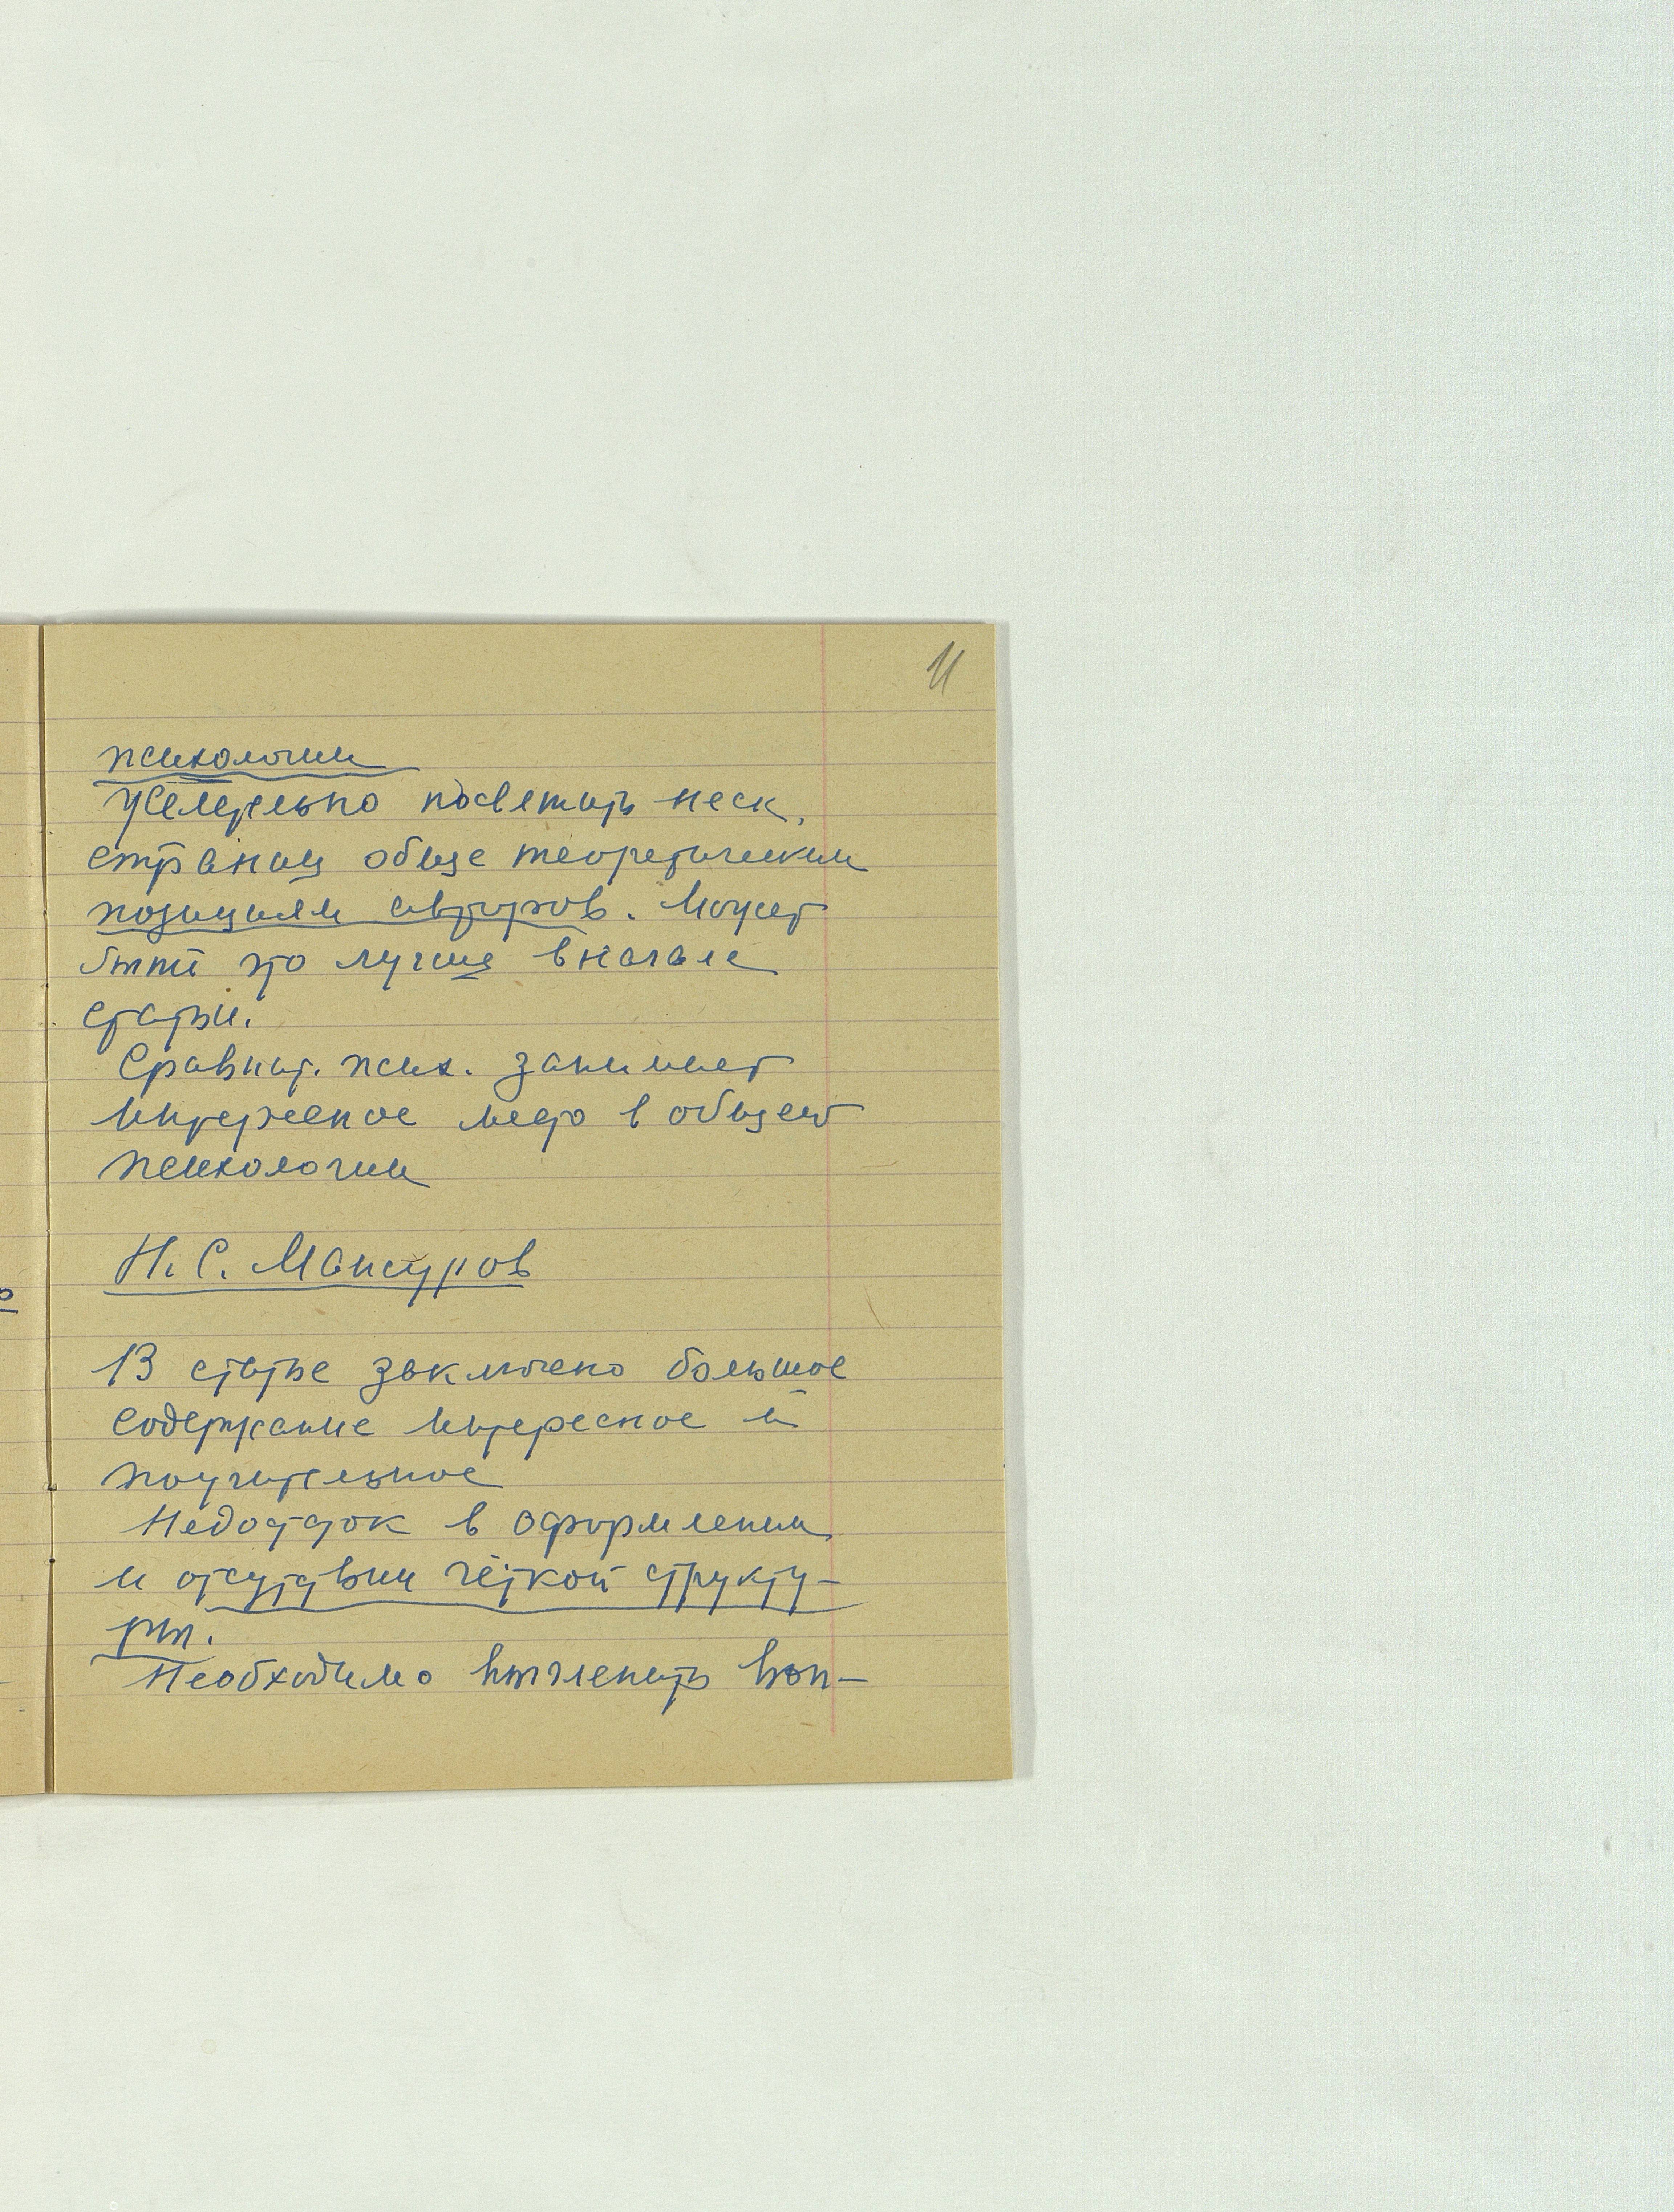 11
психологии
Желательно посвятить неск.
страниц обще теоретическим
позициям авторов. Может
быть это лучше вначале
статьи.
Сравнит. псих. занимает
интересное место в общей
психологии
Н. С. Мансуров
В статье заключено большое
содержание интересное и
поучительное
Недостаток в оформлении
и отсутствии чёткой структу-
ры.
Необходимо вычленить воп-